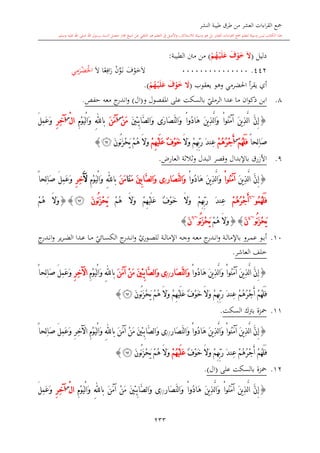 جمع القراءات العشر من طرق طيبة النشر
دليل (لَا خَوْفَ عَلَيْهُمْ) من متن الطيبة:
٤٤٢. ............... لَاخَوْفَ نَوِّنْ رَافِعًا لَا الْحَضْرَمِيْ
أي يقرأ الحضرمي وهو يعقوب (لَا خَوْفَ عَلَيْهُمْ)
٨. ابن ذكوان ما عدا الرمليّ بالسكت على المفصول و(ال) واندرج معه حفص.
﴿ إِنَّ الَّذِينَ ءَامَنُواْ وَالَّذِينَ هَادُواْ وَالنَّصَارَى وَالصَّابِئِينَ مَنْ ءَامَنَ بِاللَّهِ وَالْيَوْمِ الْآخِرِ وَعَمِلَ
صَالِحاً فَلَهُمْ أَجْرُهُمْ عِندَ رَبِّهِمْ وَلَا خَوْفٌ عَلَيْهِمْ وَلَا هُمْ يَحْزَنُونَ ﴾
٩. الأزرق بالإبدال وقصر البدل وثلاثة العارض.
﴿ إِنَّ الَّذِينَ ءَامَنُواْ وَالَّذِينَ هَادُواْ وَالنَّصَارَى وَالصَّابِينَ مَنَ امَنَ بِاللَّهِ وَالْيَوْمِ الَاخِرِ وَعَمِلَ صَالِحاً
١٠. أبو عمرو بالإمالة واندرج معه وجه الإمالة للصوريّ واندرج الكسائيّ ما عدا الضرير واندرج
خلف العاشر.
﴿ إِنَّ الَّذِينَ ءَامَنُواْ وَالَّذِينَ هَادُواْ وَالنَّصَارَى وَالصَّابِئِينَ مَنْ ءَامَنَ بِاللَّهِ وَالْيَوْمِ الْآخِرِ وَعَمِلَ صَالِحاً
فَلَهُمْ أَجْرُهُمْ عِندَ رَبِّهِمْ وَلَا خَوْفٌ عَلَيْهِمْ وَلَا هُمْ يَحْزَنُونَ ﴾
١١. حمزة بترك السكت.
﴿ إِنَّ الَّذِينَ ءَامَنُواْ وَالَّذِينَ هَادُواْ وَالنَّصَارَى وَالصَّابِئِينَ مَنْ ءَامَنَ بِاللَّهِ وَالْيَوْمِ الْآخِرِ وَعَمِلَ صَالِحاً
فَلَهُمْ أَجْرُهُمْ عِندَ رَبِّهِمْ وَلَا خَوْفٌ عَلَيْهُمْ وَلَا هُمْ يَحْزَنُونَ ﴾
١٢. حمزة بالسكت على (ال).
﴿ إِنَّ الَّذِينَ ءَامَنُواْ وَالَّذِينَ هَادُواْ وَالنَّصَارَى وَالصَّابِئِينَ مَنْ ءَامَنَ بِاللَّهِ وَالْيَوْمِ الْآخِرِ وَعَمِلَ
٢٣٣